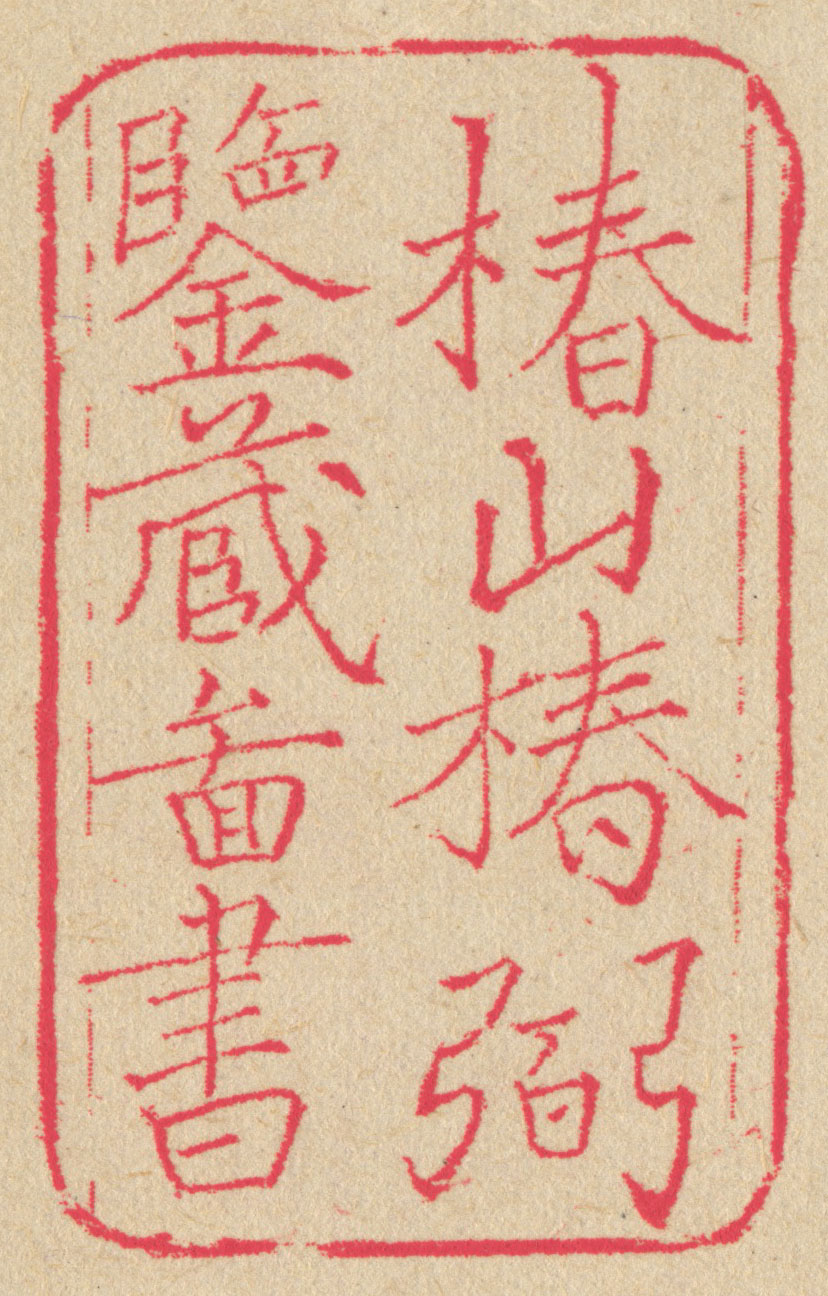 椿山椿弼
鑒藏啚書